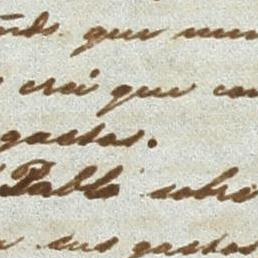 que
crei que
gastos.
Pablo sobre
sus gastos